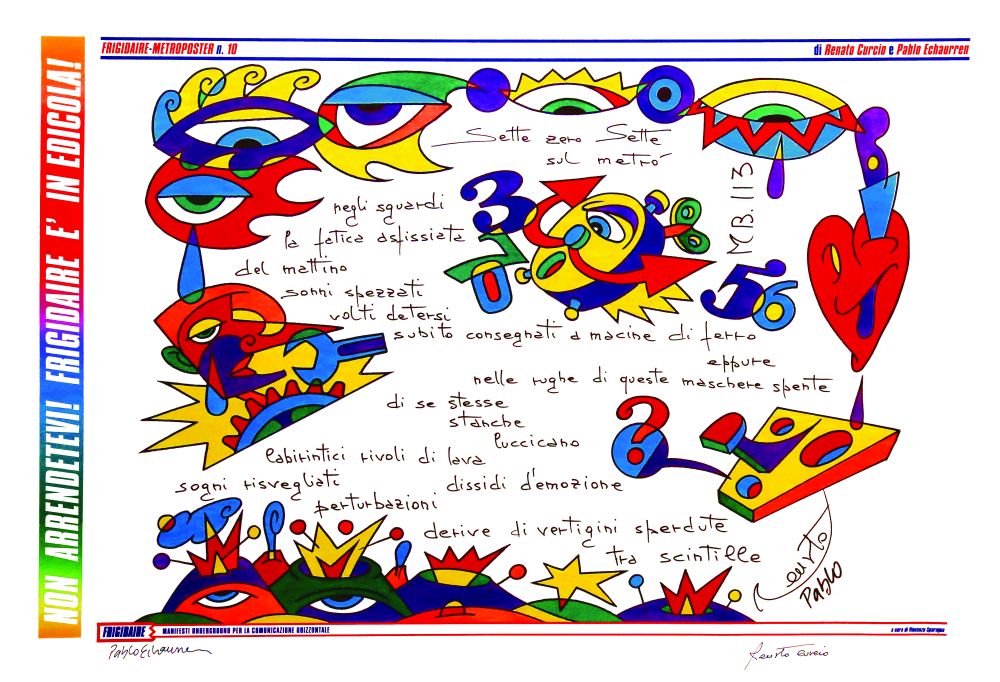 NON ARRENDETEVI! FRIGIDAIRE E' IN EDICOLA!
FRIGIDAIRE-METROPOSTER n. 10
di Renato Curcio e Pablo Echaurren
Sette zero Sette
sul metrò
M.B. 113
3
7
0
5
6
negli sguardi
la fatica asfissiata
del mattino
sonni spezzati
volti detersi
subito consegnati a macine di ferro
eppure
nelle rughe di queste maschere spente
di se stesse
stanche
luccicano
labirintici rivoli di lava
sogni risvegliati
dissidi d'emozione
perturbazioni
derive di vertigini sperdute
tra scintille
?
Renato
Pablo
FRIGIDAIRE
MANIFESTI UNDERGROUND PER LA COMUNICAZIONE ORIZZONTALE
a cura di Vincenzo Sparagna
Pablo Echaurren
Renato Curcio